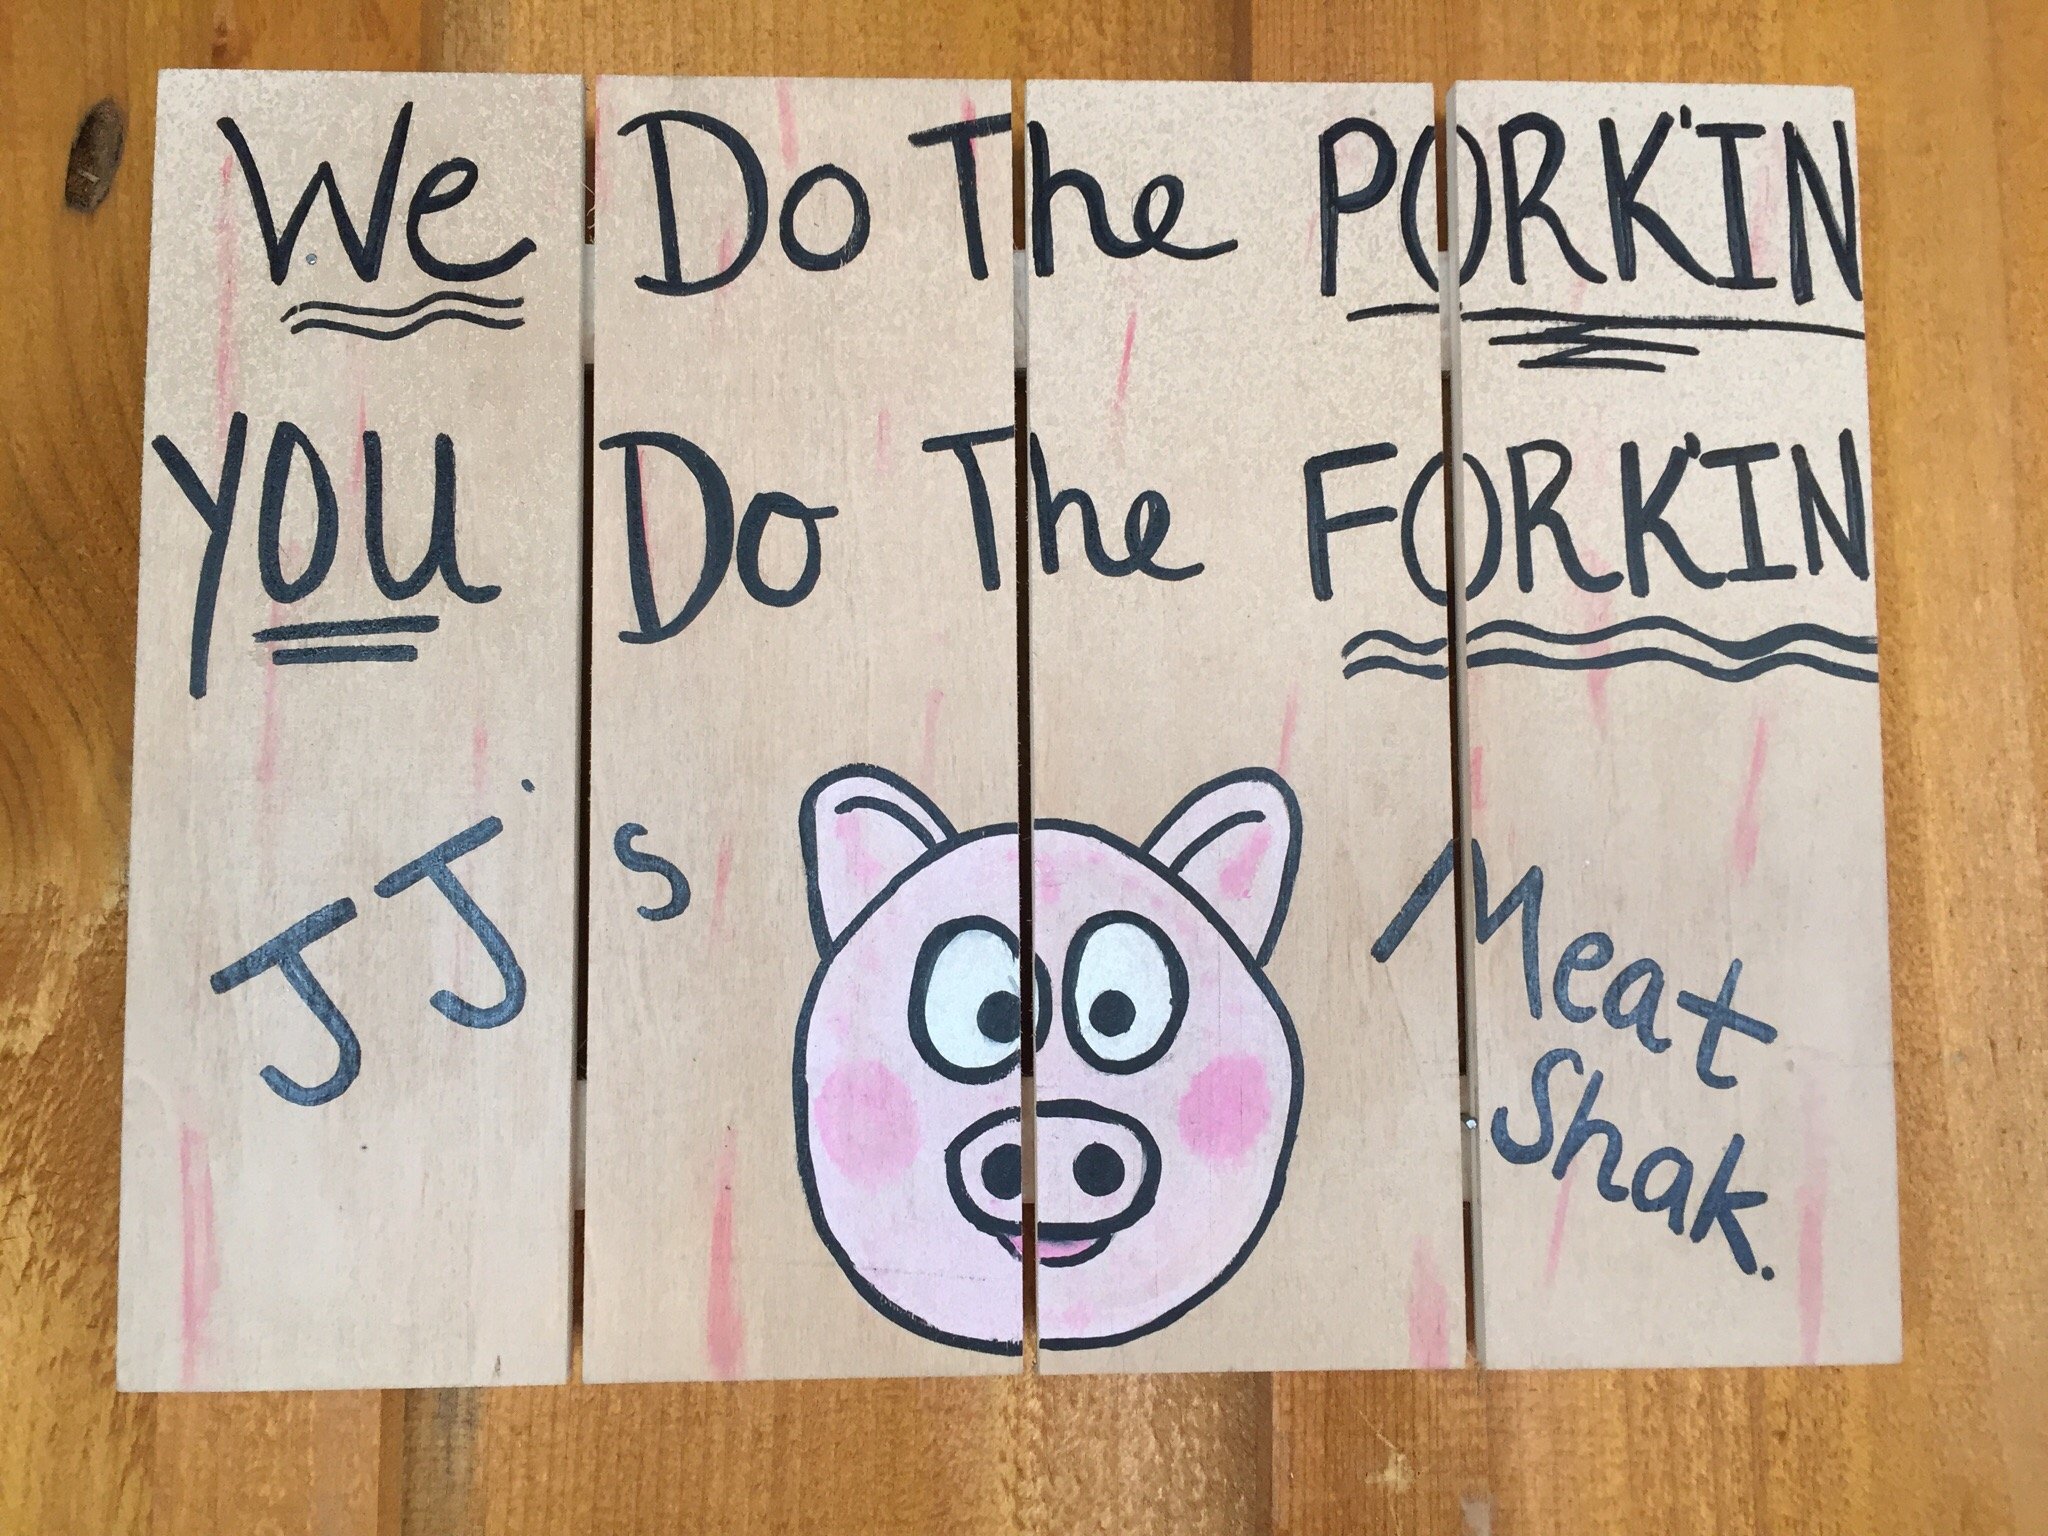 We Do The PORK'IN
YOU Do The FORK'IN
JJ's
Meat
Shak.